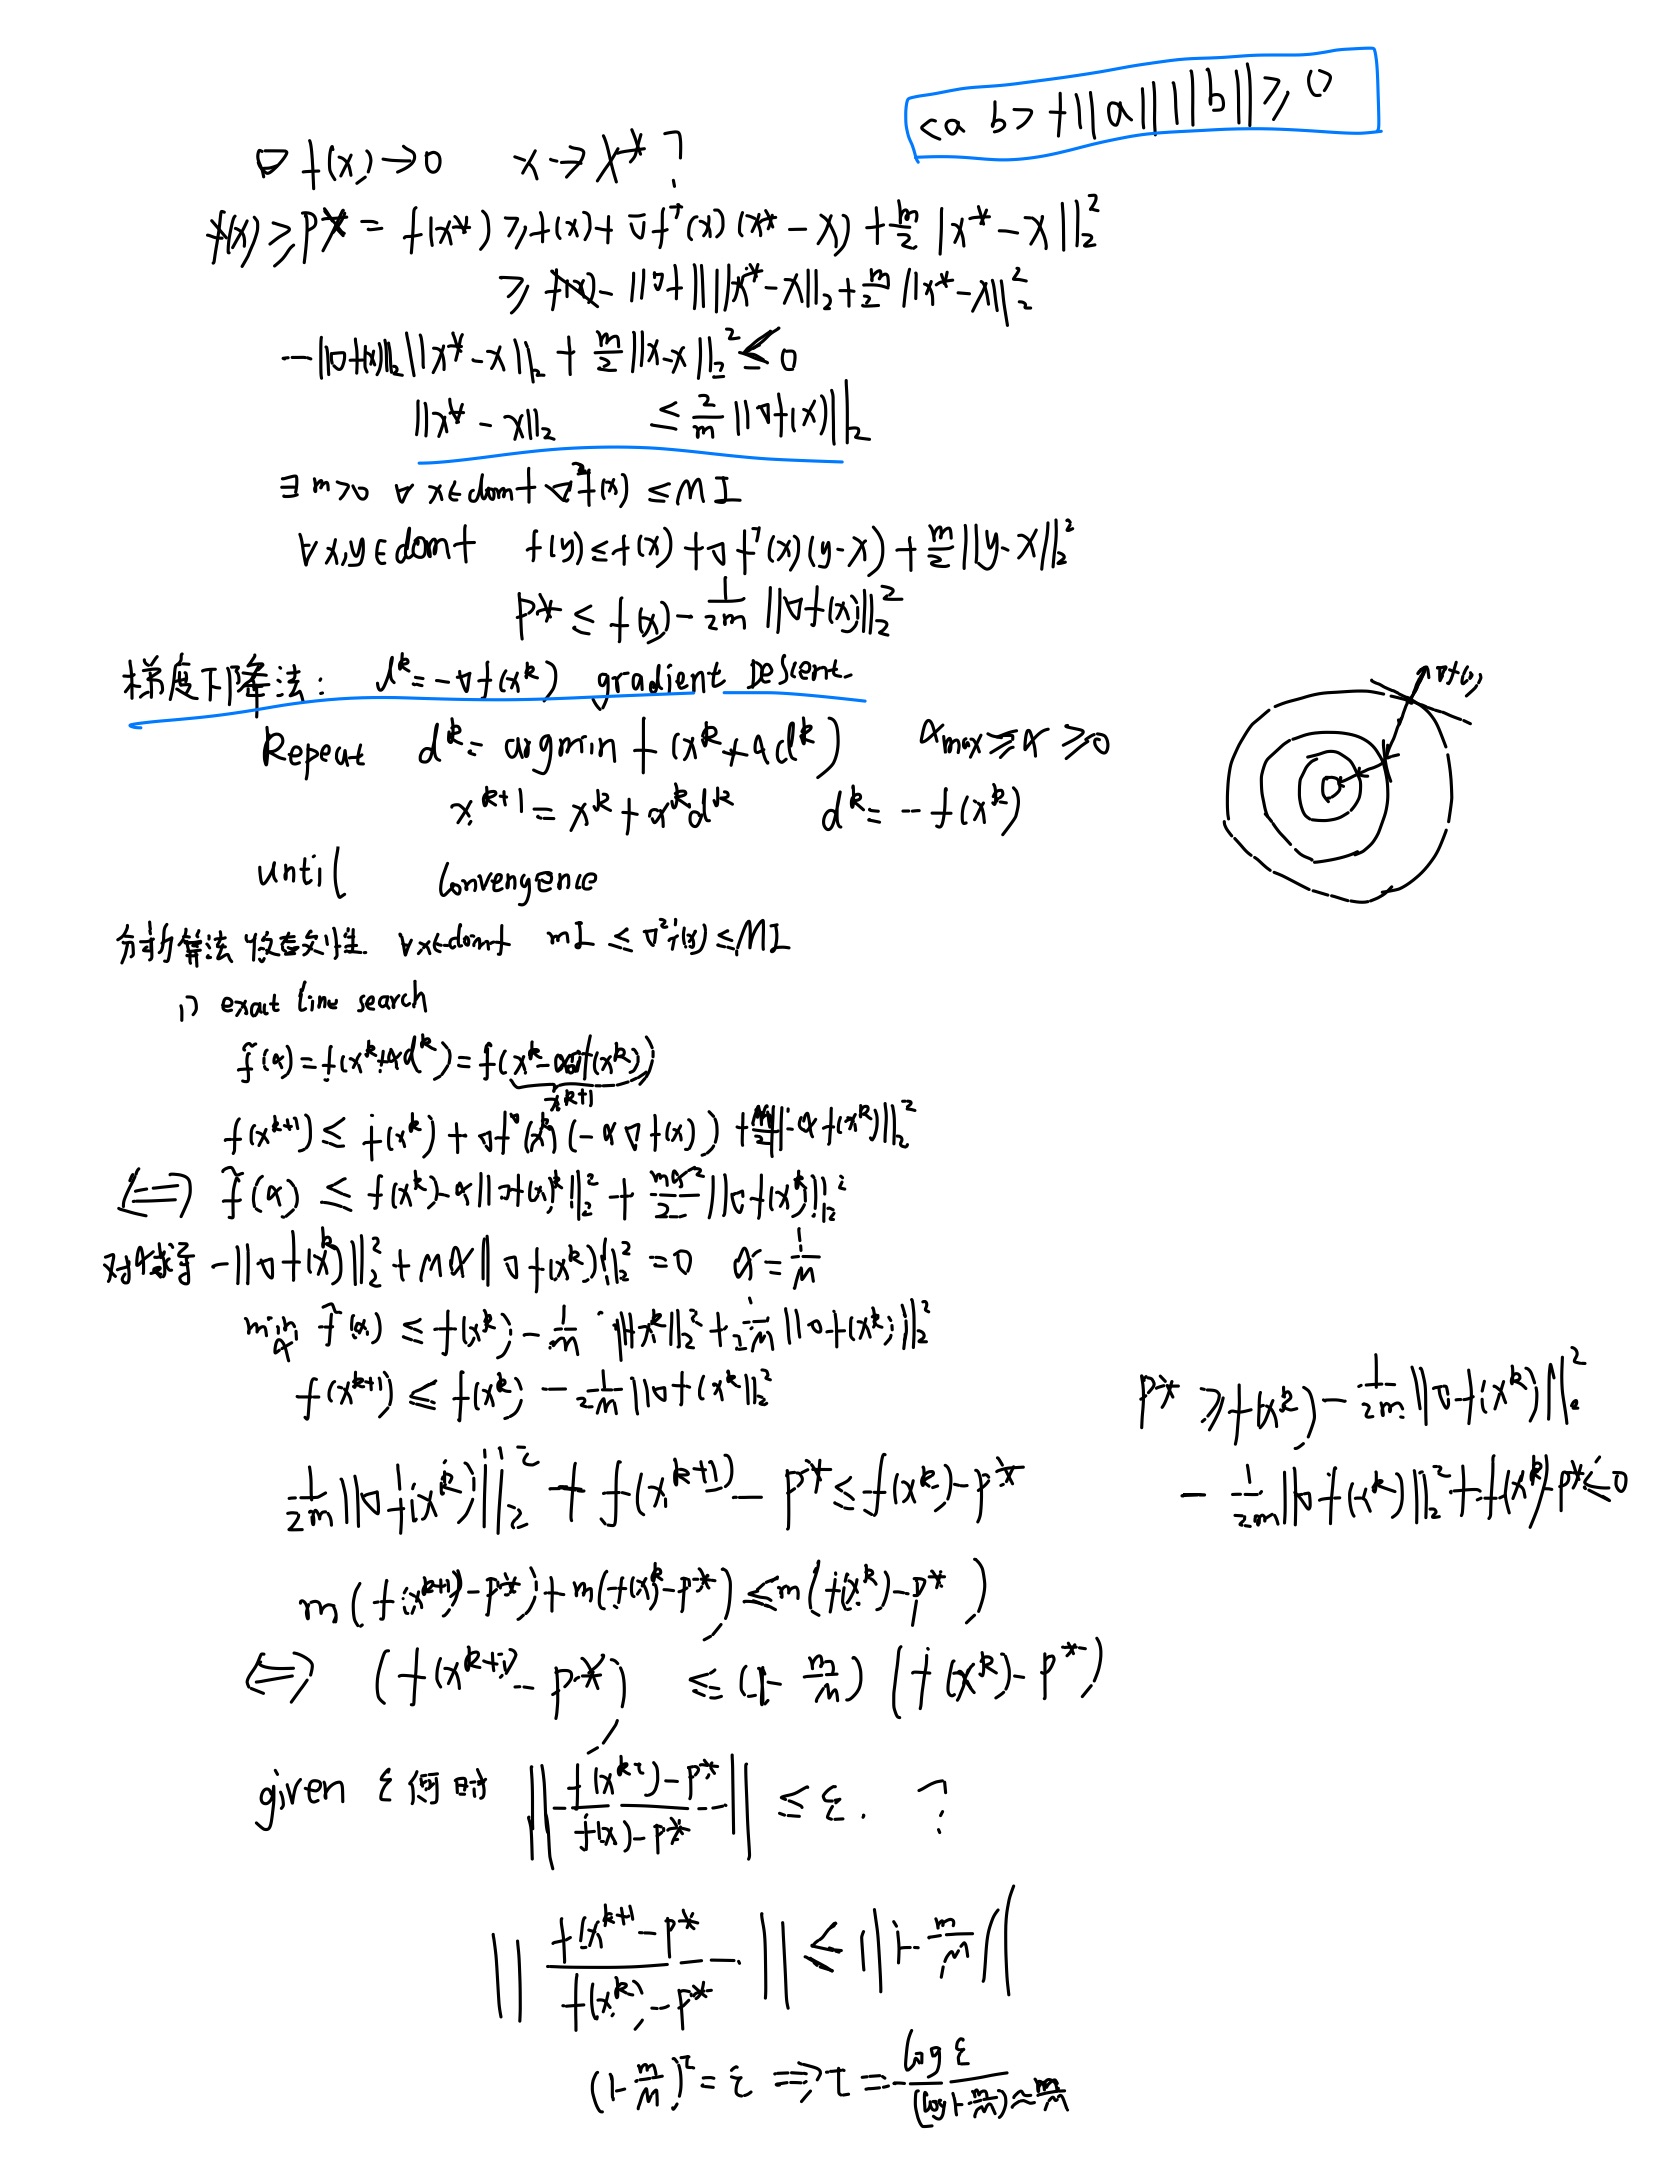 <a b> + ||a|| ||b|| ≥ 0
∇f(x)→0 x→X* ?
f(x) ≥ P* = f(x*) ≥ f(x) + ∇fᵀ(x)(x*-x) + m/2 |x*-x||₂²
≥ f(x) - ||∇f|| ||x*-x||₂ + m/2 ||x*-x||₂²
-||∇f(x)||₂ ||x*-x||₂ + m/2 ||x-x||₂² ≤ 0
||x*-x||₂ ≤ 2/m ||∇f(x)||₂
∃ m>0 ∀ x∈domf ∇²f(x) ≤ MI
∀x,y∈domf f(y) ≤ f(x) + ∇fᵀ(x)(y-x) + m/2 ||y-x||₂²
P* ≤ f(x) - 1/2m ||∇f(x)||₂²
梯度下降法: dᵏ = -∇f(xᵏ) gradient Descent
∇f(x)
Repeat dᵏ = argmin f(xᵏ+αdᵏ) αmax ≥ α ≥ 0
xᵏ⁺¹ = xᵏ + αᵏdᵏ dᵏ = -f(xᵏ)
until Convengence
分析算法收敛性. ∀x∈domf mI ≤ ∇²f(x) ≤ MI
1) exact line search
f̃(α) = f(xᵏ+αdᵏ) = f(xᵏ-α∇f(xᵏ))
xᵏ⁺¹
f(xᵏ⁺¹) ≤ f(xᵏ) + ∇fᵀ(xᵏ)(-α∇f(x)) + M/2 ||-αf(xᵏ)||₂²
⟺ f̃(α) ≤ f(xᵏ) - α||∇f(x)ᵏ||₂² + mα²/2 ||∇f(xᵏ)||₂²
对α求导 -||∇f(xᵏ)||₂² + Mα||∇f(xᵏ)||₂² = 0 α = 1/M
min α f̃(α) ≤ f(xᵏ) - 1/M ||fxᵏ||₂² + 1/2M ||∇f(xᵏ)||₂²
f(xᵏ⁺¹) ≤ f(xᵏ) - 1/2M ||∇f(xᵏ||₂²
P* ≥ f(xᵏ) - 1/2m ||∇f(xᵏ)||₂²
1/2m ||∇f(xᵏ)||₂² + f(xᵏ⁺¹) - P* ≤ f(xᵏ) - P*
- 1/2m ||∇f(xᵏ)||₂² + f(xᵏ) - P* ≤ 0
m(f(xᵏ⁺¹)-P*) + m(f(xᵏ-P*) ≤ m(f(xᵏ)-P*)
⟺ (f(xᵏ⁺¹)-P*) ≤ (1-m/M) (f(xᵏ)-P*)
given ε何时 ||f(xᵏᵗ)-P* / f(x)-P*|| ≤ ε. ?
||f(xᵏ⁺¹-P* / f(xᵏ)-P*|| ≤ ||1-m/M||
(1-m/M)ᵗ = ε ⟹ t = log ε / (log 1-m/M) ≈ m/M